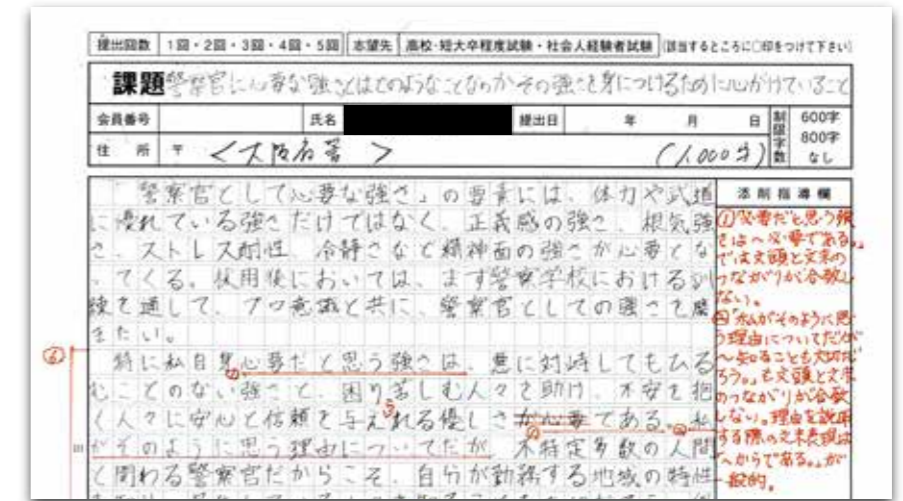 提出回数 1回・2回・3回・4回・5回 志望先 高校・短大卒程度試験・社会人経験者試験 (該当するところに○印をつけて下さい)
課題 警察官に必要な強さとはどのようなことなのかその強さを身につけるために心がけていること
会員番号 氏名 提出日 年 月 日 制限字数 600字 800字 なし
住所 〒 <大阪府警> (1,000字)
「警察官として必要な強さ」の要素には、体力や武道
に優れている強さだけではなく、正義感の強さ、根気強
さ、ストレス耐性、冷静さなど精神面の強さが必要とな
ってくる。採用後においては、まず警察学校における訓
練を通して、プロ意識と共に、警察官としての強さを磨
きたい。
特に私自身必要だと思う強さは、悪に対峙してもひる
むことのない強さと、困り苦しむ人々を助け、不安を抱
く人々に安心と信頼を与えれる優しさが必要である。私
がそのように思う理由についてだが、不特定多数の人間
と関わる警察官だからこそ、自分が勤務する地域の特性
ら
⑥
添削指導欄
①「必要だと思う強
さは〜必要である。」
では文頭と文末の
つながりが合致し
ない。
②「私がそのように思
う理由についてだが
〜知ることも大切だ
ろう。」も文頭と文末
のつながりが合致
しない。理由を説明
する際の文末表現は
「〜からである。」が
一般的。